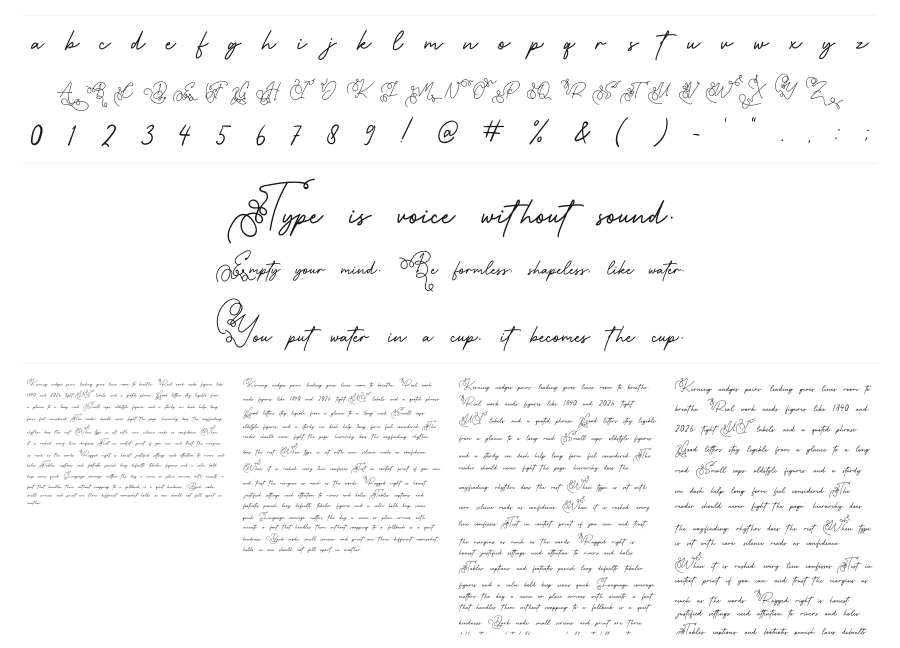 a b c d e f g h i j k l m n o p q r s t u v w x y z
A B C D E F G H I J K L M N O P Q R S T U V W X Y Z
0 1 2 3 4 5 6 7 8 9 ! @ # % & ( ) - ' " . , : ;
Type is voice without sound.
Empty your mind. Be formless. shapeless. like water.
You put water in a cup. it becomes the cup.
Kerning nudges pairs leading gives lines room to breathe Real work needs figures like
1840 and 2026 tight
a glance to a long read Small caps oldstyle figures and a sturdy en dash help long
form feel considered The reader should never fight the page hierarchy does the wayfinding
rhythm does the rest When type is set with care silence reads as confidence When
it is rushed every line confesses Test in context print if you can and trust the margins
as much as the words Ragged right is honest justified settings need attention to rivers and
holes Tables captions and footnotes punish lazy defaults tabular figures and a calm bold
keep scans quick Language coverage matters the day a name or place arrives with accents a
font that handles them without swapping to a fallback is a quiet kindness Dark mode
small screens and print are three different somewhat habits so one should not fall apart in
matter
Kerning nudges pairs leading gives lines room to breathe Real work
needs figures like 1840 and 2026 tight
Good letters stay legible from a glance to a long read Small caps
oldstyle figures and a sturdy en dash help long form feel considered The
reader should never fight the page hierarchy does the wayfinding rhythm
does the rest When type is set with care silence reads as confidence
When it is rushed every line confesses Test in context print if you can
and trust the margins as much as the words Ragged right is honest
justified settings need attention to rivers and holes Tables captions and
footnotes punish lazy defaults tabular figures and a calm bold keep scans
quick Language coverage matters the day a name or place arrives with
accents a font that handles them without swapping to a fallback is a quiet
kindness Dark mode small screens and print are three different somewhat
habits so one should not fall apart in matter
Kerning nudges pairs leading gives lines room to breathe
Real work needs figures like 1840 and 2026 tight
labels and a quoted phrase Good letters stay legible
from a glance to a long read Small caps oldstyle figures
and a sturdy en dash help long form feel considered The
reader should never fight the page hierarchy does the
wayfinding rhythm does the rest When type is set with
care silence reads as confidence When it is rushed every
line confesses Test in context print if you can and trust
the margins as much as the words Ragged right is
honest justified settings need attention to rivers and holes
Tables captions and footnotes punish lazy defaults tabular
figures and a calm bold keep scans quick Language coverage
matters the day a name or place arrives with accents a font
that handles them without swapping to a fallback is a quiet
kindness Dark mode small screens and print are three
Kerning nudges pairs leading gives lines room to
breathe Real work needs figures like 1840 and
2026 tight labels and a quoted phrase
Good letters stay legible from a glance to a long
read Small caps oldstyle figures and a sturdy
en dash help long form feel considered The
reader should never fight the page hierarchy does
the wayfinding rhythm does the rest When type
is set with care silence reads as confidence
When it is rushed every line confesses Test in
context print if you can and trust the margins as
much as the words Ragged right is honest
justified settings need attention to rivers and holes
Tables captions and footnotes punish lazy defaults